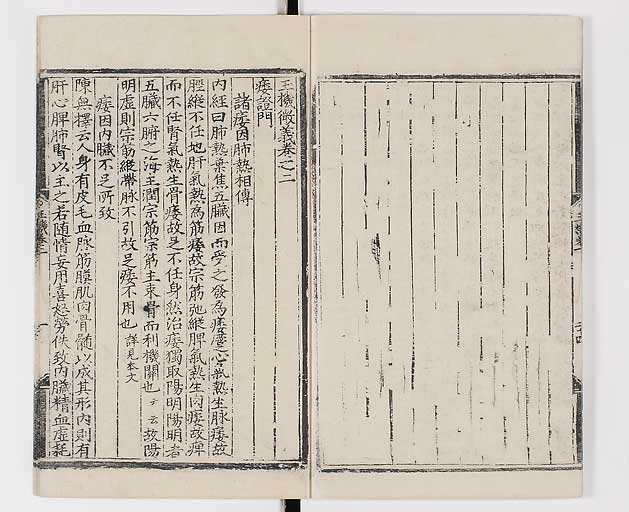 玉機微義卷之二
痿證門
諸痿因肺熱相傳
內經曰肺熱葉焦五臟因而受之發為痿躄心氣熱生脉痿故
脛縱不任地肝氣熱為筋痿故宗筋弛縱脾氣熱生肉痿故痺
而不仁腎氣熱生骨痿故足不任身然治痿獨取陽明陽明者
五臟六腑之海主潤宗筋宗筋主束骨而利機關也云云故陽
明虛則宗筋縱帶脉不引故足痿不用也 詳見本文
痿因內臟不足所致
陳無擇云人身有皮毛血脉筋膜肌肉骨髓以成其形內則有
肝心脾肺腎以主之若随情妄用喜怒勞佚致內臟精血虛耗